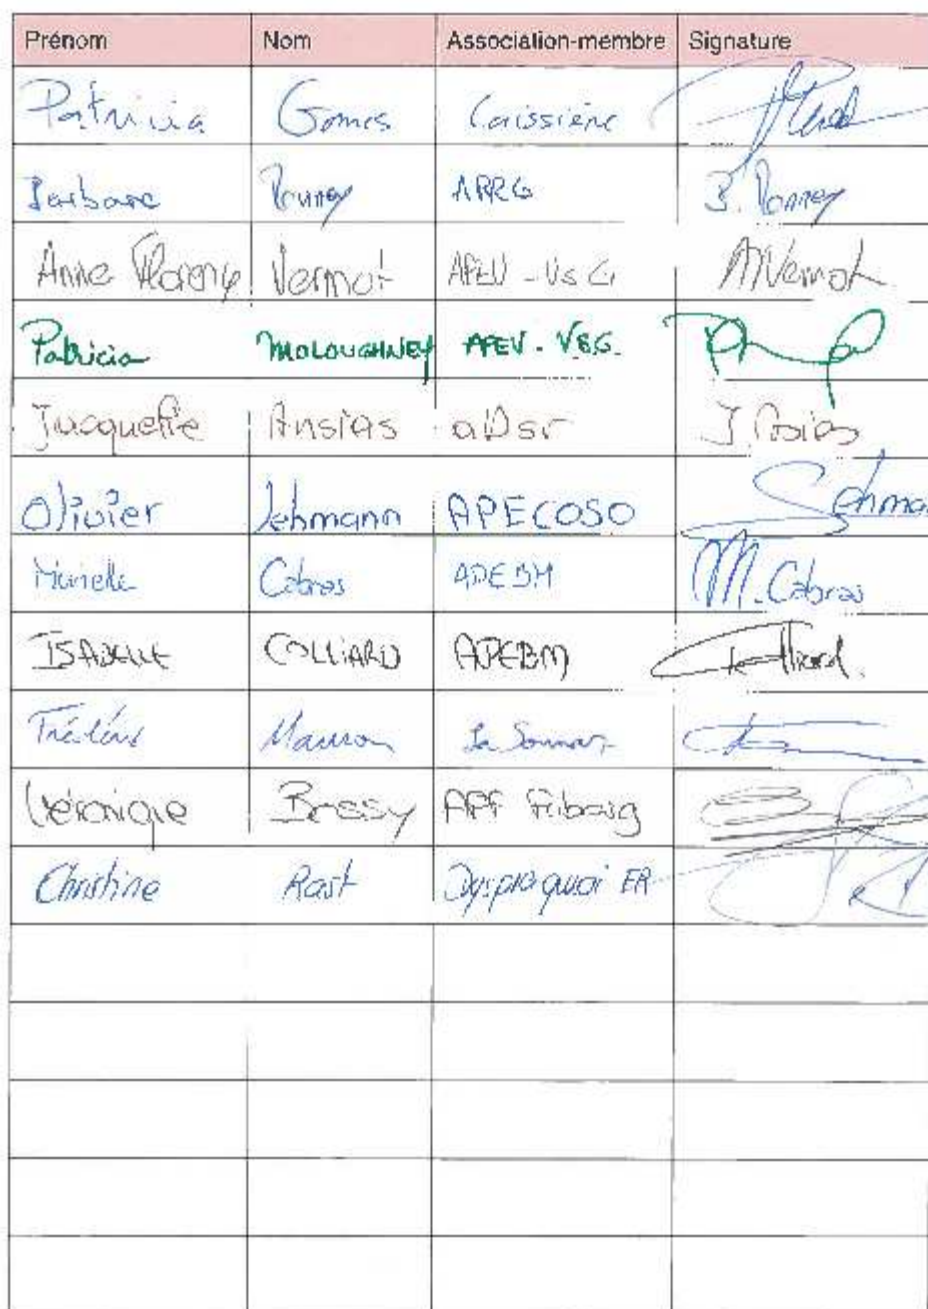 Prénom Nom Association-membre Signature
Patricia Gomes Caissière
Barbara Ronney APRG B. Ronney
Anne Florence Vermot APEV - VsG AVermot
Patricia MOLOUGHNEY APEV - VSG.
Jacqueline Ansias aDsr J. Ansias
Olivier Lehmann APECOSO Lehman
Murielle Cabras APEBM M. Cabras
ISABELLE COLLIARD APEBM Colliard.
Frédéric Mauron La Sonnaz
Véronique Bessy APF Fribourg
Christine Rast Dyspraquoi FR